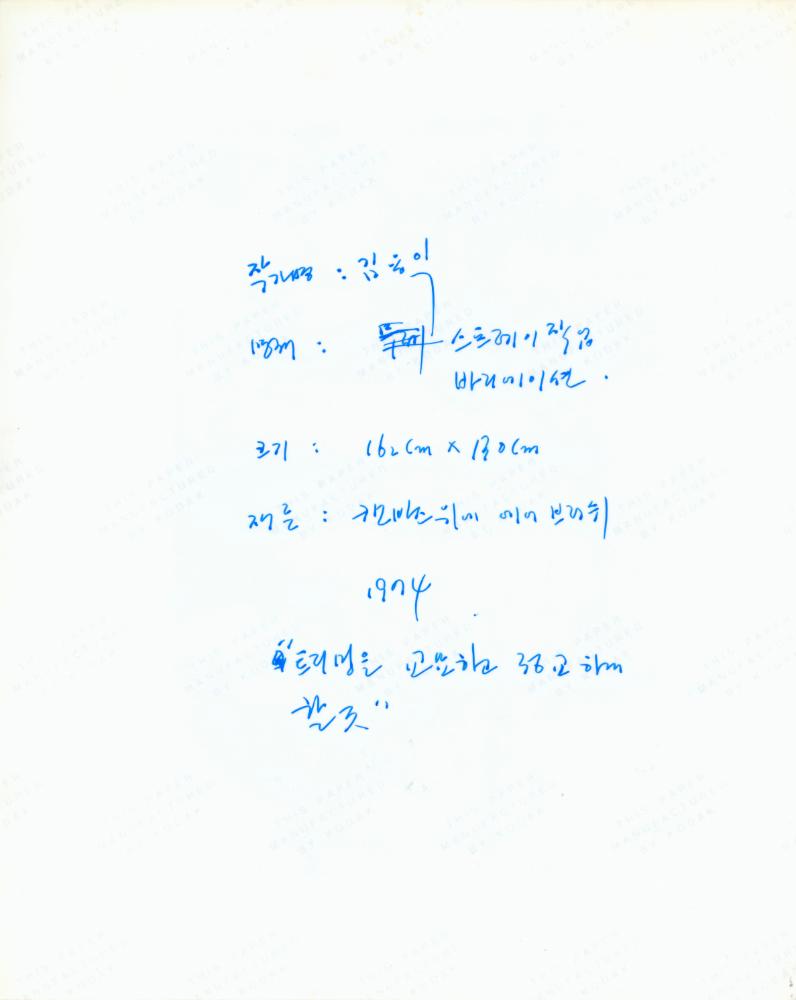 작가명 : 김웅이
명제 : 스트레이 작업
바리에이션 .
크기 : 162cm x 130cm
재료 : 캔바스위에 에어 브러쉬
1974
"트리밍을 고 하고 하게
할 것"
THIS PAPER
MANUFACTURED
BY KODAK